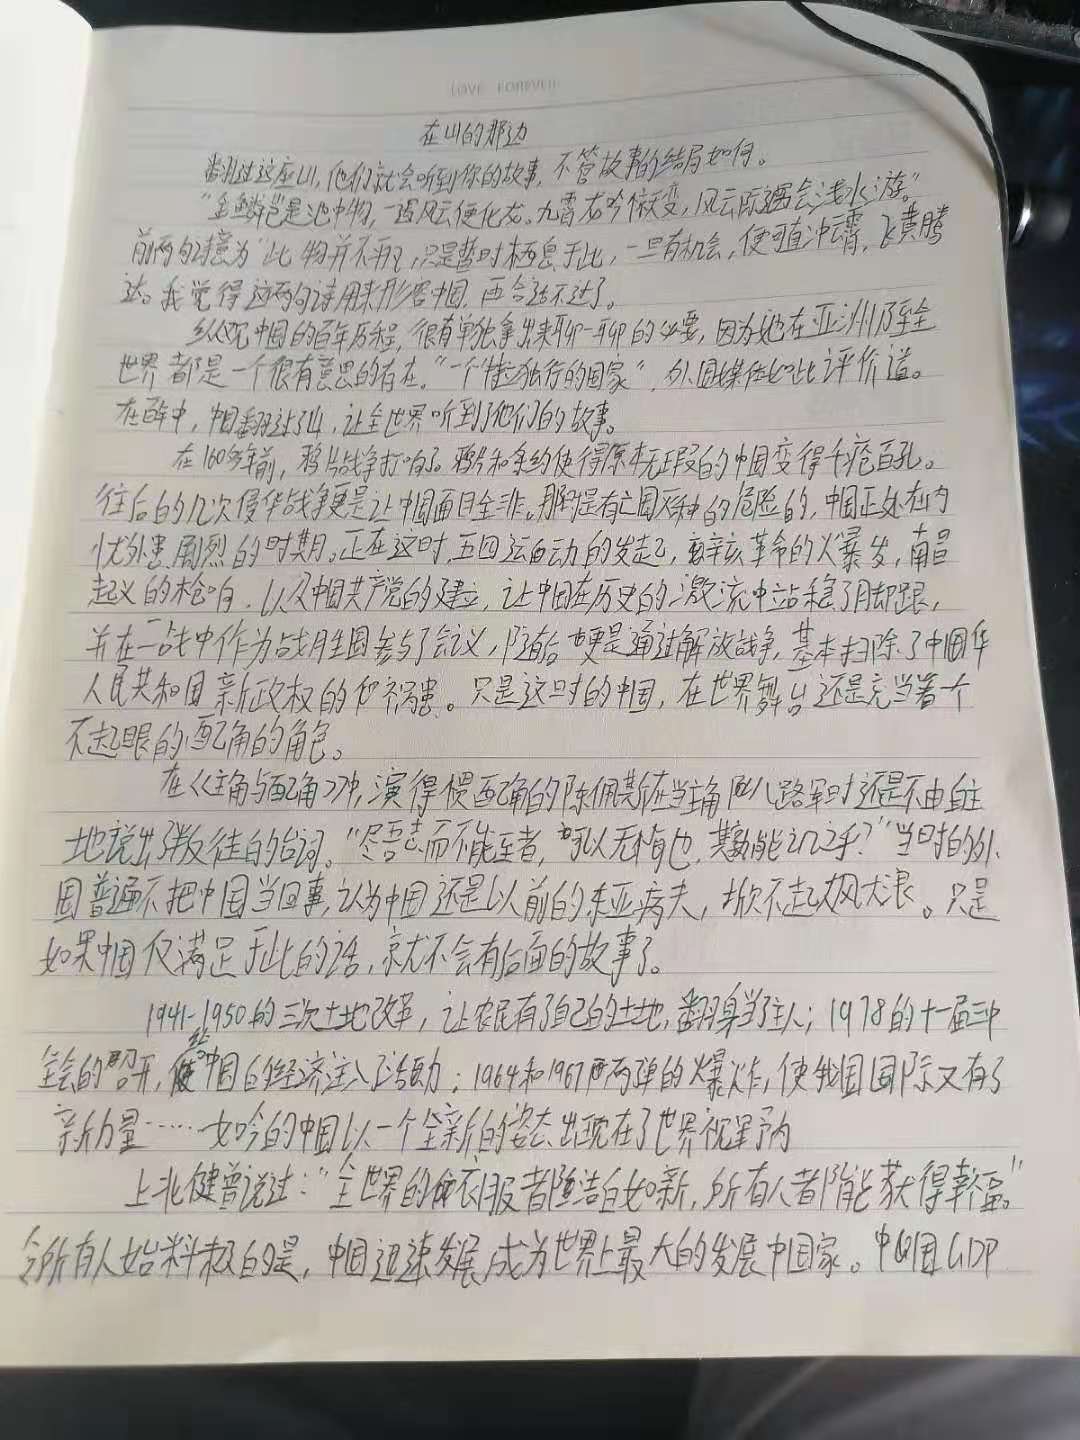 LOVE FOREVER
在山的那边
翻过这座山，他们就会听到你的故事，不管故事的结局如何。
“金鳞岂是池中物，一遇风云便化龙。九霄龙吟惊天变，风云际遇会浅水游。”
前两句诗意为“此物并不平凡，只是暂时栖息于此，一旦有机会，便可直冲云霄，飞黄腾
达。我觉得这两句诗用来形容中国，再合适不过了。
纵观中国的百年历程，很有单独拿出来聊一聊的必要，因为她在亚洲乃至全
世界都是一个很有意思的存在。“一个特立独行的国家”，外国媒体如此评价道。
在百年中，中国翻过了山，让全世界听到了他们的故事。
在160多年前，鸦片战争打响了。鸦片和条约使得原本无瑕的中国变得千疮百孔。
往后的几次侵华战争更是让中国面目全非。那时是有亡国灭种的危险的，中国正处在内
忧外患剧烈的时期。正在这时，五四运动的发起，辛亥革命的爆发，南昌
起义的枪响，以及中国共产党的建立，让中国在历史的激流中站稳了脚跟，
并在一战中作为战胜国参与了会议，随后更是通过解放战争，基本扫除了中国华
人民共和国新政权的祸患。只是这时的中国，在世界舞台还是充当着一个
不起眼的配角的角色。
在《主角与配角》中，演得惯配角的陈佩斯在当主角八路军时还是不由自主
地说出了叛徒的台词。“尽吾志而不能至者，可以无悔也，其孰能讥之乎？”当时的外
国普遍不把中国当回事，认为中国还是以前的东亚病夫，掀不起大风大浪。只是
如果中国仅满足于此的话，就不会有后面的故事了。
1941-1950的三次土地改革，让农民有了自己的土地，翻身当了主人；1978的十一届三中
全会的召开，给中国的经济注入了活力；1964和1967年两弹的爆炸，使我国国际又有了
新力量……如今的中国以一个全新的姿态出现在了世界视野内
上北健曾说过：“全世界的不服者随洁白如新，所有人者都能获得幸福。”
令所有人始料未及的是，中国迅速发展，成为世界上最大的发展中国家。中国GDP